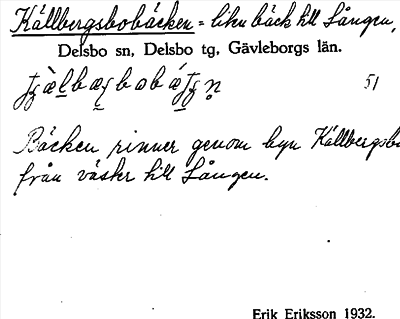 Källbergsbobäcken = liten bäck till Lången,
Delsbo sn, Delsbo tg, Gävleborgs län.
51
Bäcken rinner genom byn Källbergsb
från väster till Lången.
Erik Eriksson 1932.